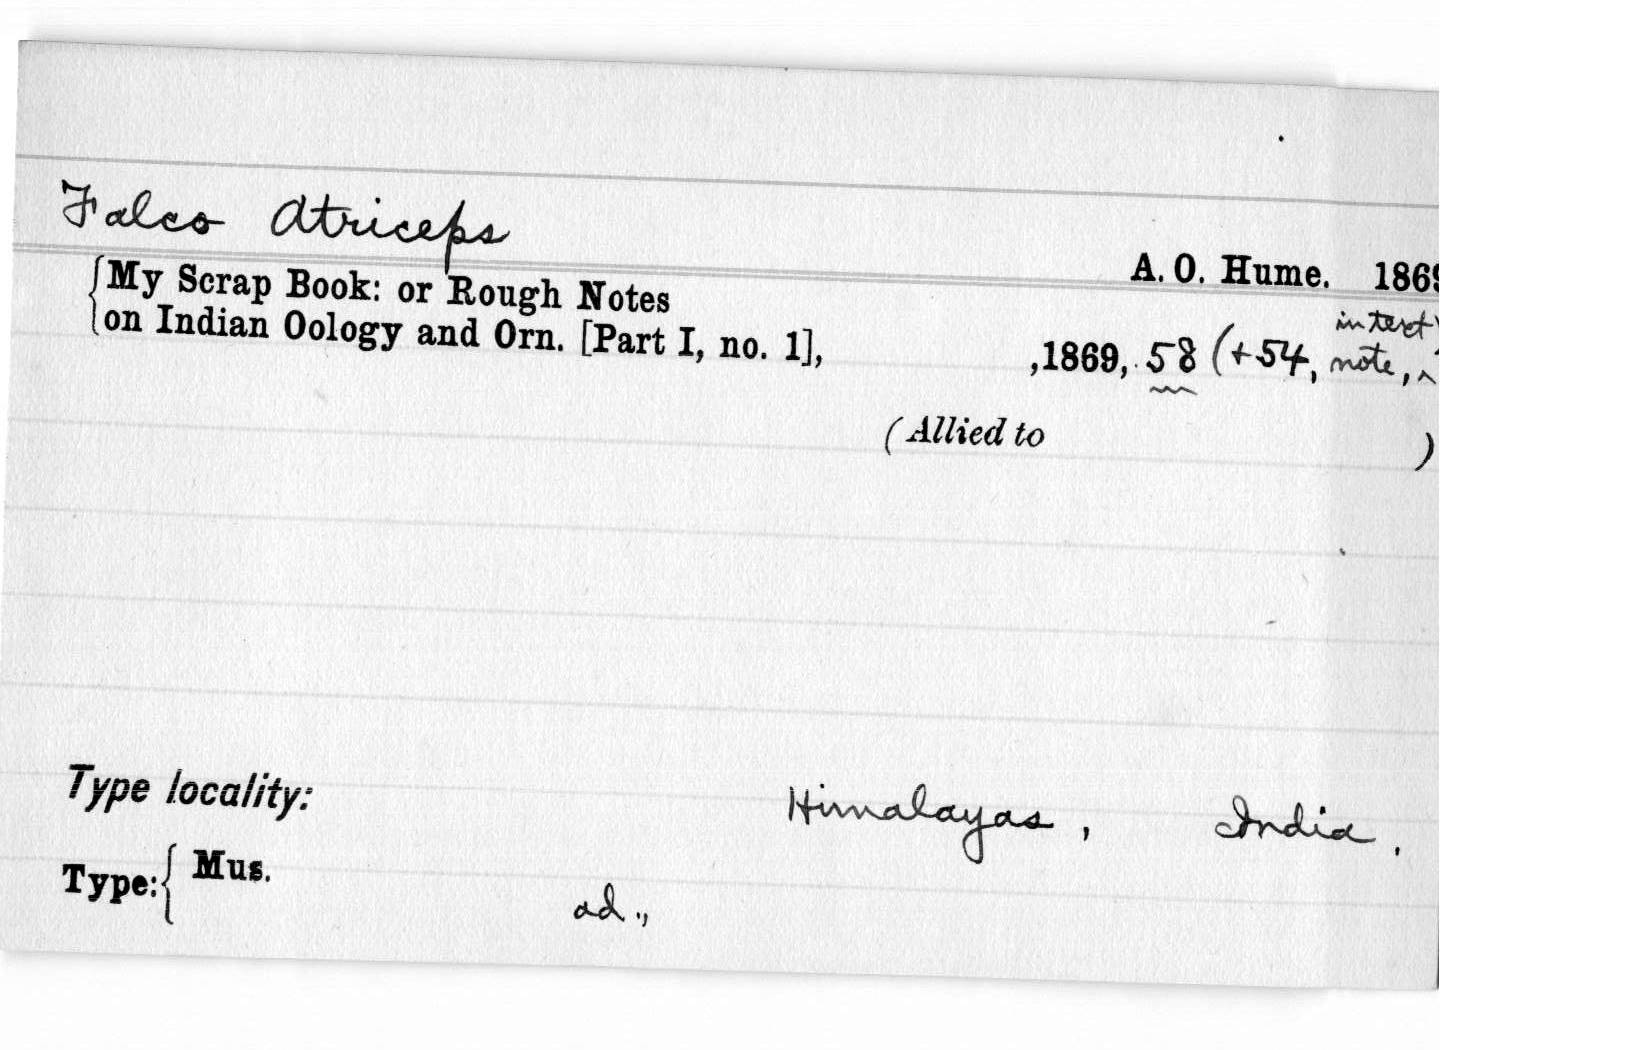 Falco Atriceps
A. O. Hume. 1869
{My Scrap Book: or Rough Notes
on Indian Oology and Orn. [Part I, no. 1], ,1869, 58 (+54, note, ^
in text)
(Allied to )
Type locality: Himalayas, India.
Type:{ Mus.
ad.,